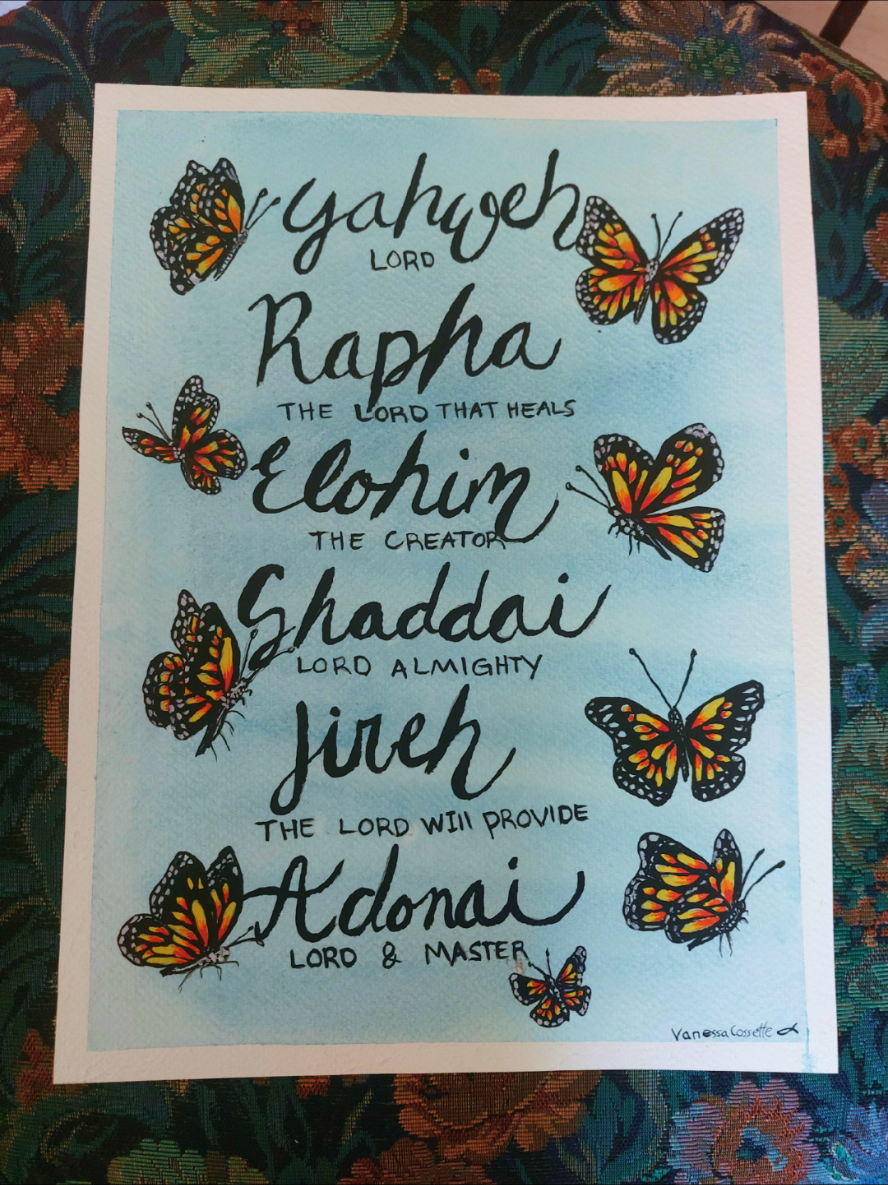 Yahweh
LORD
Rapha
THE LORD THAT HEALS
Elohim
THE CREATOR
Shaddai
LORD ALMIGHTY
Jireh
THE LORD WIll PROVIDE
Adonai
LORD & MASTER
Vanessa Cossette